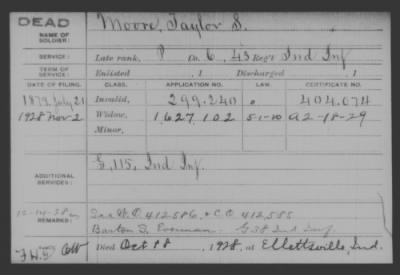 DEAD
NAME OF SOLDIER: Moore, Taylor S.
SERVICE: Late rank, P Co. C, 43 Reg't Ind Inf
TERM OF SERVICE: Enlisted , 1 Discharged , 1
DATE OF FILING. CLASS. APPLICATION NO. LAW. CERTIFICATE NO.
1879 July 21 Invalid, 299.240 404.074
1928 Nov 2 Widow, 1627102 5-1-20 A2-18-29
Minor,
ADDITIONAL SERVICES: G, 115, Ind Inf.
12-14-28
REMARKS: W.O 412586, & C.O 412,585
Barton S. G 38 Ind Inf
Died Oct 18, 1928, at Ellettsville, Ind.